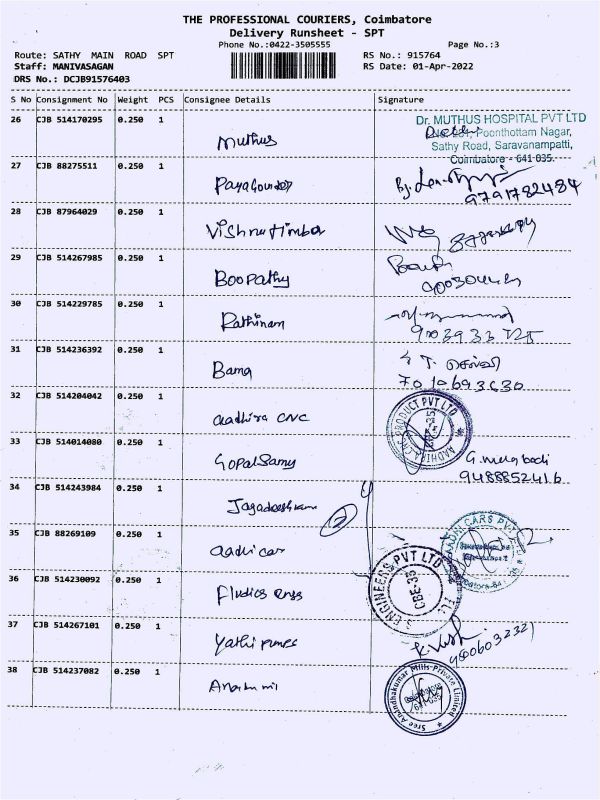 THE PROFESSIONAL COURIERS, Coimbatore
Delivery Runsheet - SPT
Phone No.:0422-3505555 Page No.:3
Route: SATHY MAIN ROAD SPT RS No.: 915764
Staff: MANIVASAGAN RS Date: 01-Apr-2022
DRS No.: DCJB91576403
S No Consignment No Weight PCS Consignee Details Signature
26 CJB 514170295 0.250 1 Muthus
Dr. MUTHUS HOSPITAL PVT LTD
Poonthottam Nagar,
Sathy Road, Saravanampatti,
Coimbatore - 641 035.
27 CJB 88275511 0.250 1 Payagounder
9791782484
28 CJB 87964029 0.250 1 Vishnu timber
29 CJB 514267985 0.250 1 Boopathy
30 CJB 514229785 0.250 1 Rathinam
31 CJB 514236392 0.250 1 Bama
32 CJB 514204042 0.250 1 aadhira cnc
AADHIRA CNC PRODUCT PVT LTD
33 CJB 514014080 0.250 1 Gopalsamy
9488852416
34 CJB 514243984 0.250 1 Jagadeeshwaran
2
35 CJB 88269109 0.250 1 aadri car
AADRI CARS PVT
36 CJB 514230092 0.250 1 Fludics engs
ENGINEERS PVT LTD
CBE-35
37 CJB 514267101 0.250 1 Yathi pumps
38 CJB 514237082 0.250 1
Sree Anandhakumar Mills Private Limited